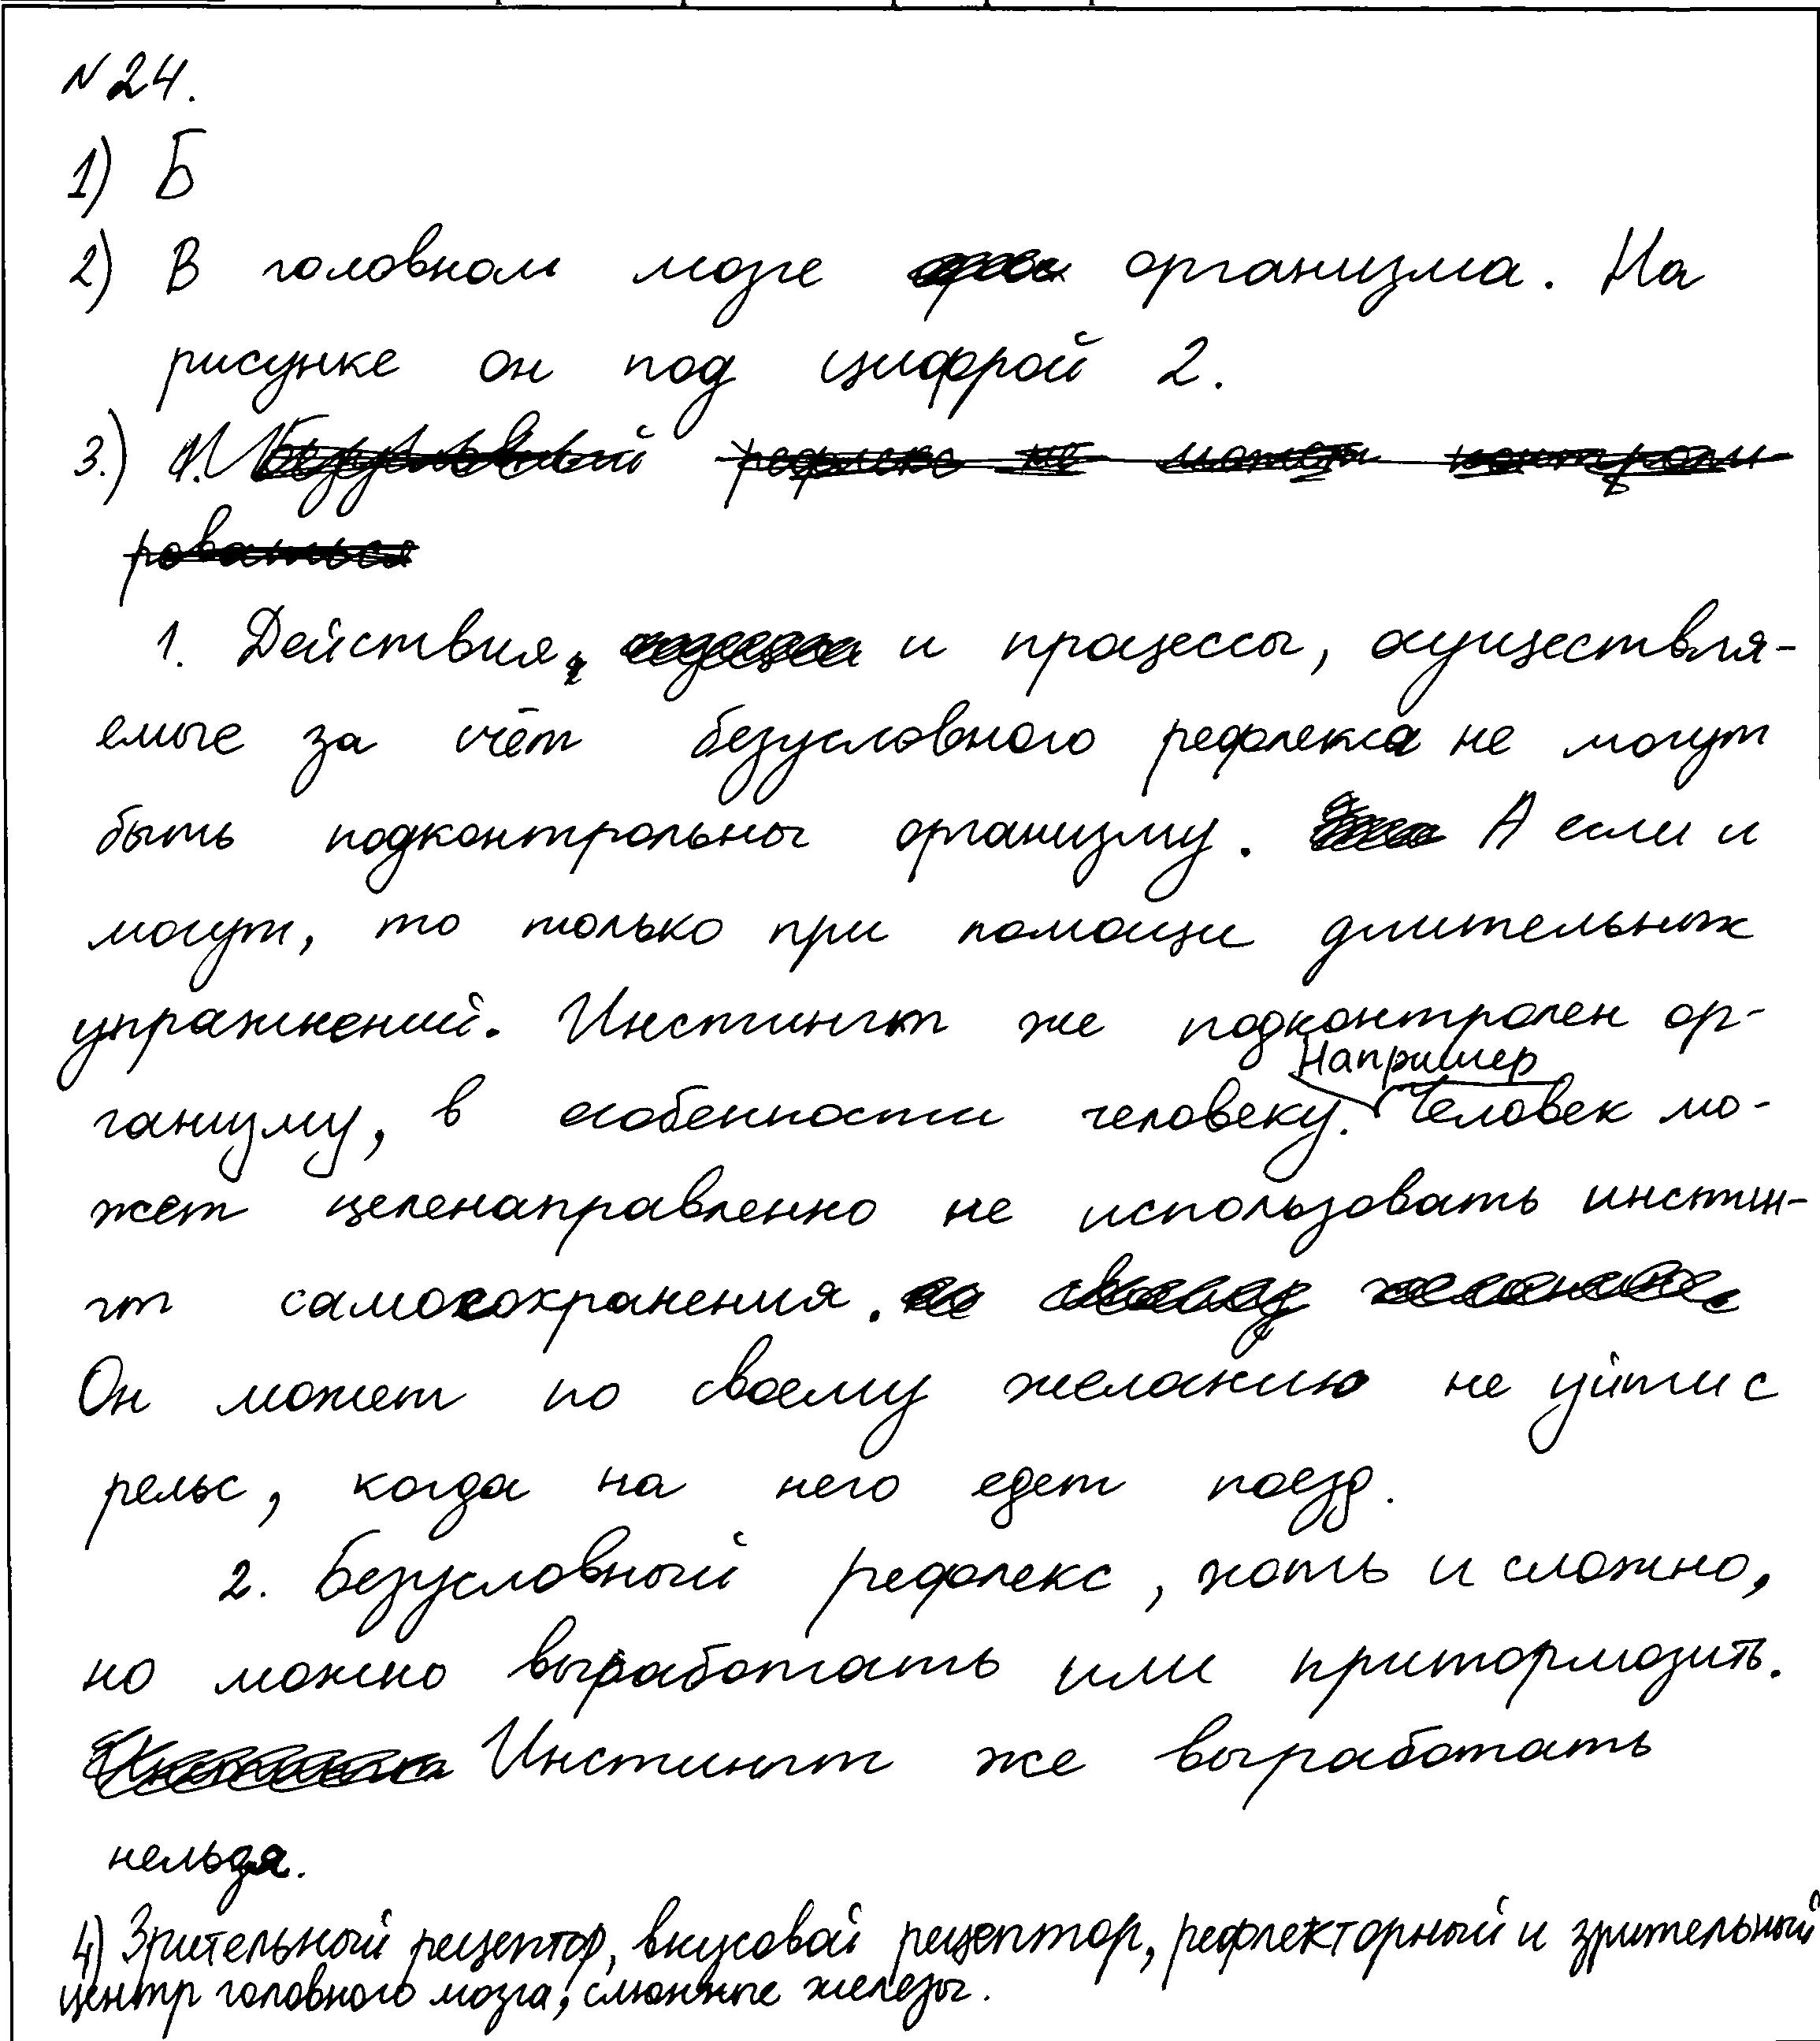 №24.
1) Б
2) В головном мозге организма. На
рисунке он под цифрой 2.
3.) 1. Безусловный рефлекс не может контроли
роваться
1. Действия, и процессы, осуществля-
емые за счёт безусловного рефлекса не могут
быть подконтрольны организму. А если и
могут, то только при помощи длительных
упражнений. Инстинкт же подконтролен ор-
Например
ганизму, в особенности человеку. Человек мо-
жет целенаправленно не использовать инстин-
кт самосохранения.
Он может по своему желанию не уйти с
рельс, когда на него едет поезд.
2. Безусловный рефлекс, хоть и сложно,
но можно выработать или притормозить.
Инстинкт же выработать
нельзя.
4) Зрительный рецептор, вкусовой рецептор, рефлекторный и зрительный
центр головного мозга, слюнные железы.